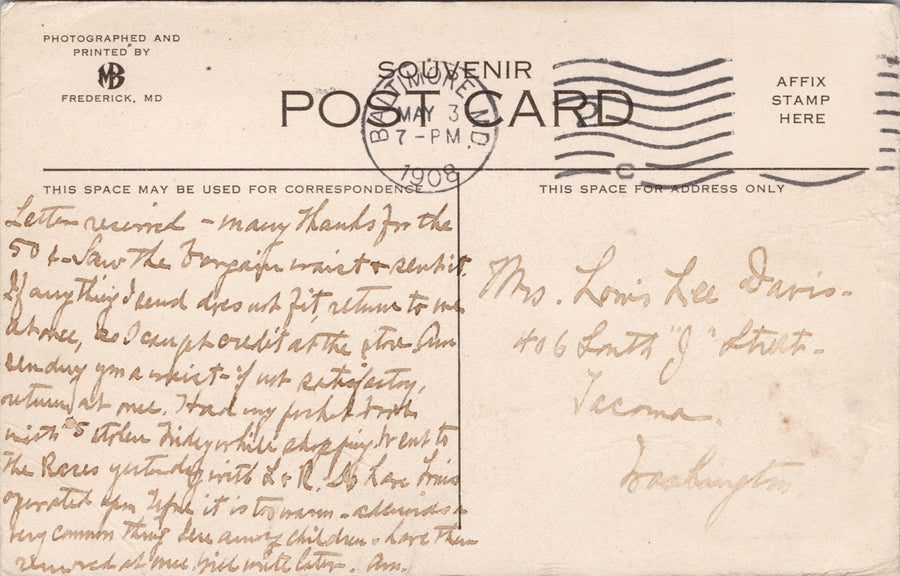 PHOTOGRAPHED AND
PRINTED BY
MB
FREDERICK, MD
SOUVENIR
POST CARD
BALTIMORE, MD.
MAY 3
7-PM
1908
AFFIX
STAMP
HERE
THIS SPACE MAY BE USED FOR CORRESPONDENCE
THIS SPACE FOR ADDRESS ONLY
Letter received - many thanks for the
50¢ - Saw the bargain waist & sent it.
If anything I send does not fit, return to me
at once, as I can get credit at the store. Am
sending you a waist - if not satisfactory,
return at once. Had my pocket book
with $5 stolen Friday while shopping. Went to
the Races yesterday with L & R. Do have Louis
operated upon before it is too warm - adenoids a
very common thing here among children - have them
removed at once. Will write later. Am.
Mrs. Louis Lee Davis -
406 South "J" Street -
Tacoma.
Washington